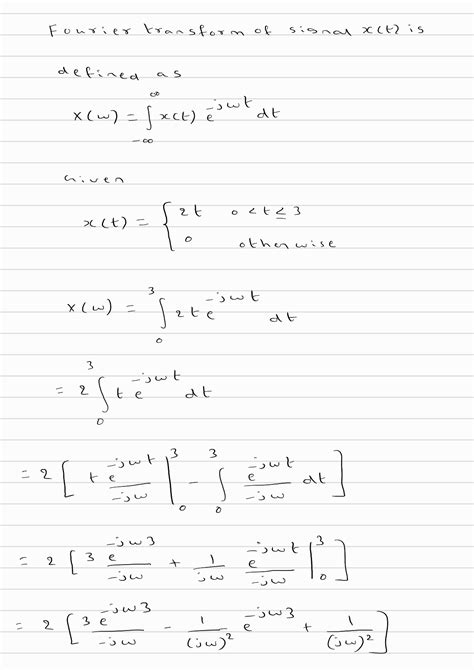 Fourier transform of signal x(t) is
defined as
X(w) = ∫_{-∞}^{∞} x(t) e^{-jwt} dt
Given
x(t) = { 2t 0 < t ≤ 3
0 otherwise
X(w) = ∫_{0}^{3} 2t e^{-jwt} dt
= 2 ∫_{0}^{3} t e^{-jwt} dt
= 2 [ t e^{-jwt}/-jw |_{0}^{3} - ∫_{0}^{3} e^{-jwt}/-jw dt ]
= 2 [ 3 e^{-jw3}/-jw + 1/jw e^{-jwt}/-jw |_{0}^{3} ]
= 2 [ 3 e^{-jw3}/-jw - 1/(jw)^2 e^{-jw3} + 1/(jw)^2 ]